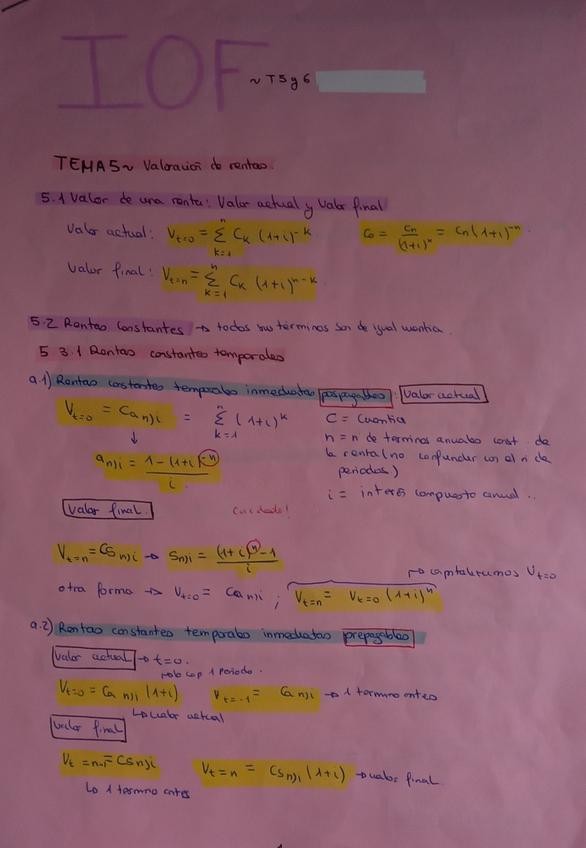 IOF ~ T5 y 6
TEMA 5 ~ Valoración de rentas.
5.1 Valor de una renta: Valor actual y Valor final
Valor actual: V_{t=0} = Σ_{k=1}^{n} C_k (1+i)^{-k}   C_0 = C_n/(1+i)^n = C_n (1+i)^{-n}
Valor final: V_{t=n} = Σ_{k=1}^{n} C_k (1+i)^{n-k}
5.2 Rentas Constantes → todos sus términos son de igual cuantía.
5 3.1 Rentas constantes temporales
a.1) Rentas constantes temporales inmediatas pospagables: Valor actual
V_{t=0} = C a_{n⌉i} = Σ_{k=1}^{n} (1+i)^k   C = Cuantía
↓   n = n de terminos anuales const. de
a_{n⌉i} = 1-(1+i)^{-n} / i   la renta (no confundir con el n de
periodos)
i = interés compuesto anual ..
Valor final.   Cuidado!
V_{t=n} = C S_{n⌉i} → S_{n⌉i} = (1+i)^n - 1 / i
→ capitalizamos V_{t=0}
otra forma → V_{t=0} = C a_{n⌉i} ; V_{t=n} = V_{t=0} (1+i)^n
a.2) Rentas constantes temporales inmediatas prepagables
Valor actual → t=0.
→ cap 1 periodo.
V_{t=0} = C a_{n⌉i} (1+i)   V_{t=-1} = C a_{n⌉i} → 1 termino antes
↳ valor actual
Valor final
V_{t=n-1} = C S_{n⌉i}   V_{t=n} = C S_{n⌉i} (1+i) → valor final
↳ 1 termino antes